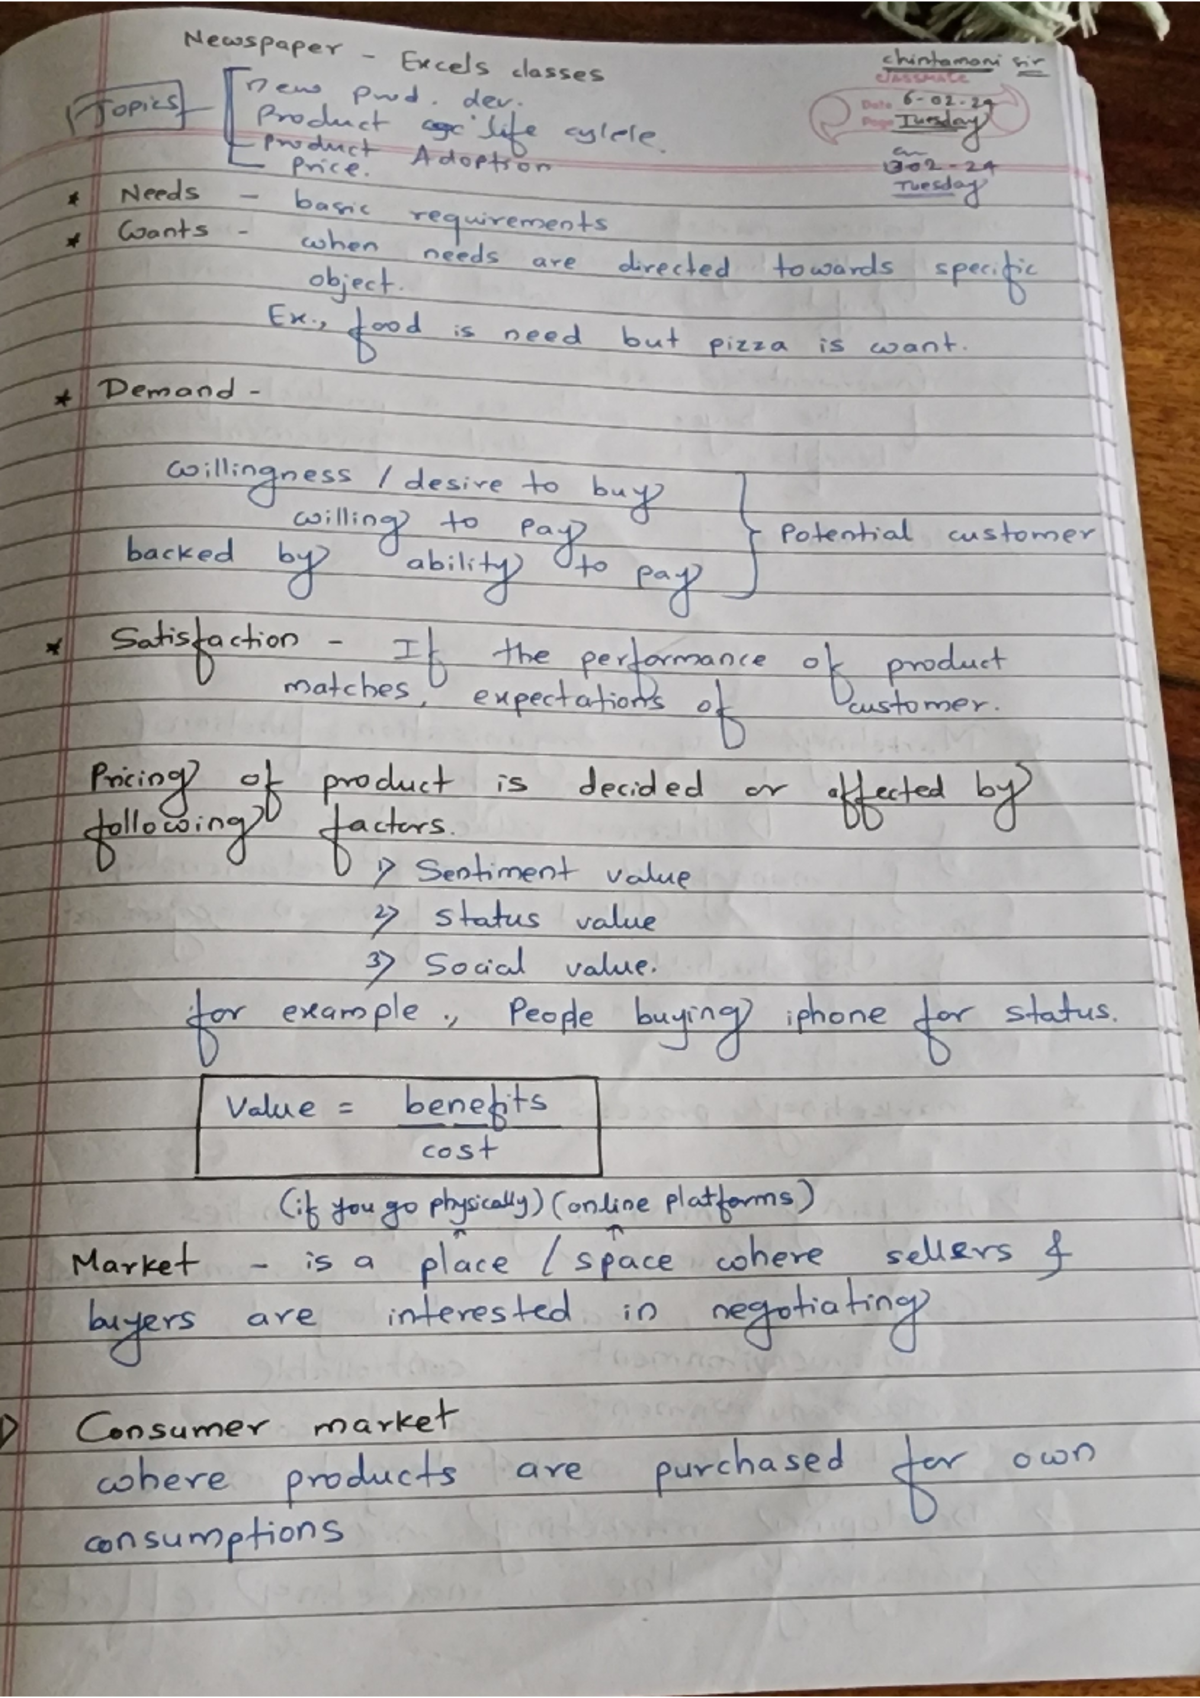 Newspaper - Excels classes
chintamani sir
classmate
Date 6-02-24
Page Tuesday
13-02-24
Tuesday
Topics
new prod. dev.
Product life cylcle.
Product Adoption
Price.
* Needs - basic requirements
* Wants - when needs are directed towards specific
object.
Ex., food is need but pizza is want.
* Demand -
willingness / desire to buy
willing to pay
backed by ability to pay
Potential customer
* Satisfaction - If the performance of product
matches, expectations of customer.
Pricing of product is decided or affected by
following factors.
1) Sentiment value
2) Status value
3) Social value.
for example ., People buying iphone for status.
Value = benefits
cost
(if you go physically) (online platforms)
Market - is a place / space where sellers &
buyers are interested in negotiating
Consumer market
where products are purchased for own
consumptions